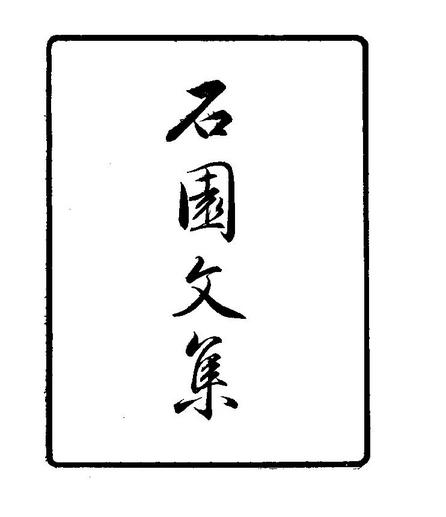 石園文集